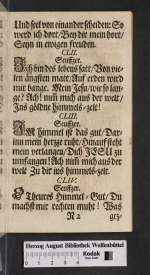 Und seel von einander scheiden: So
werd ich dort / Bey dir mein hort /
Seyn in ewigen freuden.
CLII.
Seuffzer.
Ich bin des lebens satt / Von vie-
len ängsten matt: Auf erden wird
mir bange. Mein Jesu / wie so lan-
ge? Ach! nim̃ mich aus der welt /
Ins göldne himmels-zelt!
CLIII.
Seuffzer.
Im himmel ist das gut / Dar-
inn mein hertze ruht: Hinauf steht
mein verlangen / Dich JESU zu
umfangen! Ach nim̃ mich aus der
welt Zu dir ins himmels-zelt.
CLIV.
Seuffzer.
O Theures Himmel-Gut / Du
machst mir rechten muht! Was
N 2
Herzog August Bibliothek Wolfenbüttel